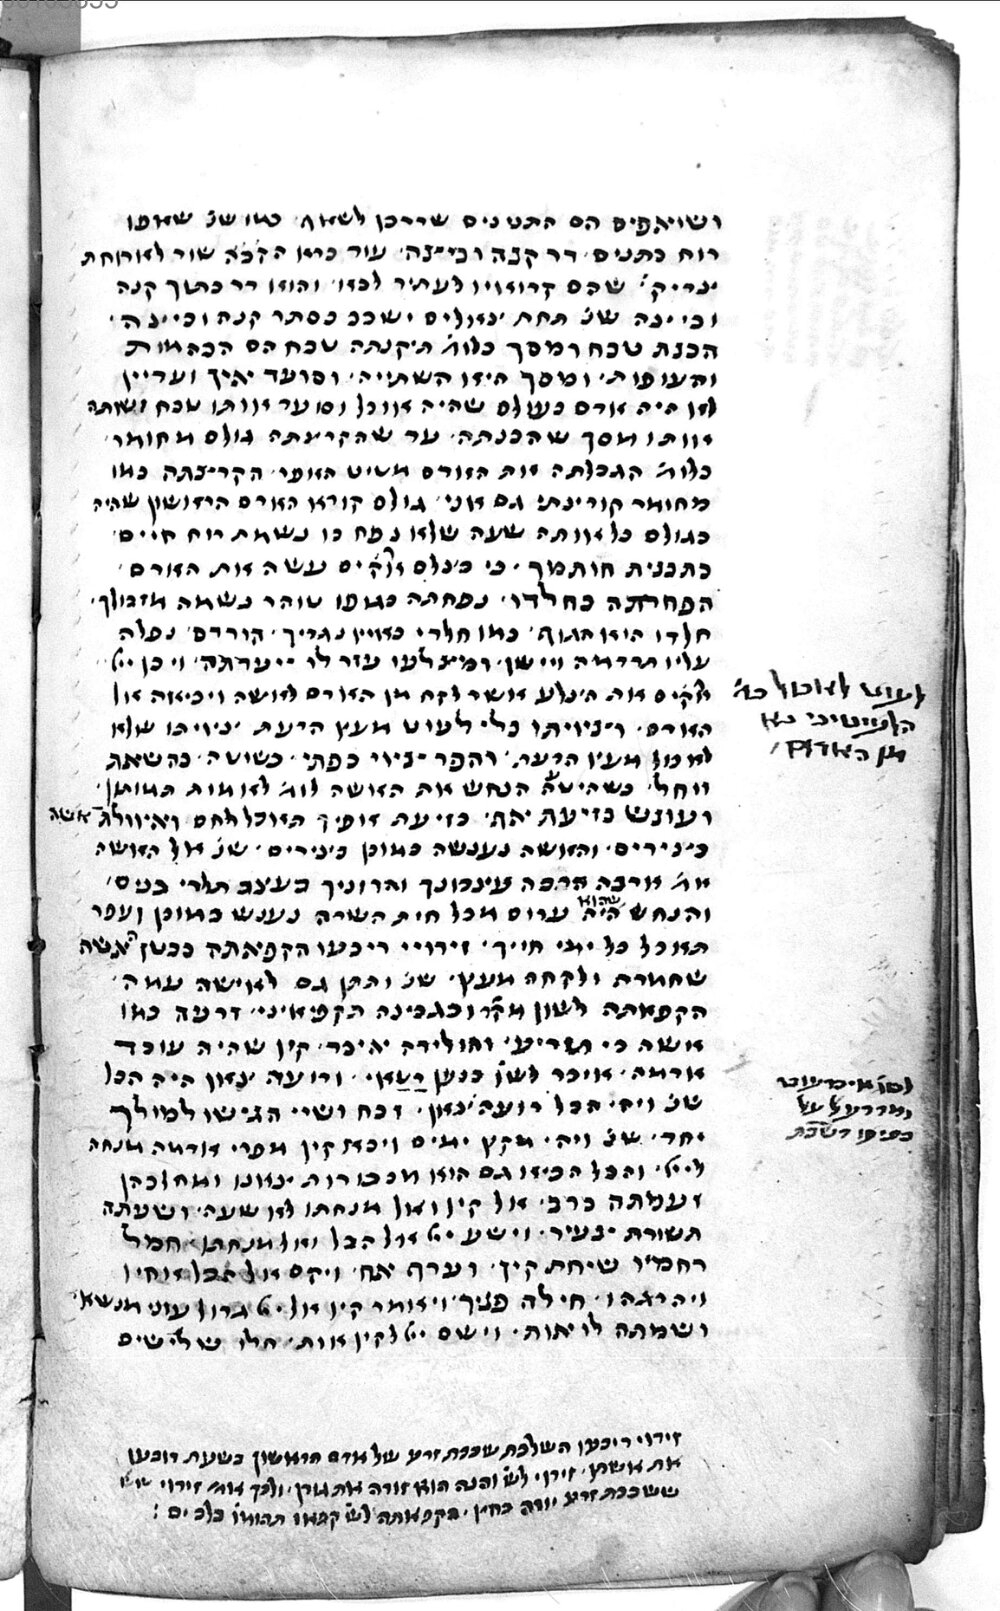 ושואפים הם התנינים שדרכן לשאוף כמו שנ' שאפו
רוח כתנים דר קנה וביצה עוד בראו הקב"ה שור לארוחת
צדיק' שהם קרואויו לעתיד לבוא והוא דר בתוך קנה
וביצה שנ' תחת צאלים ישכב בסתר קנה וביצה
הכנת טבח ומסך כלומ' תיקנתה טבח הם הבהמות
והעופות ומסך היא השתייה וסועד אין ועדיין
לא היה אדם בעולם שהיה אוכל וסועד אותו טבח ושותה
אותו מסך שהכנתה עד שהקרצתה גולם מחומר
כלומ' הגבלתה את האדם מטיט העפר הקרצתה כמו
מחומר קורצתי גם אני גולם קורא האדם הראשון שהיה
כגולם כל אותה שעה שלא נפח בו נשמת רוח חיים
כתבנית חותמך כי בצלם אלקים עשה את האדם
הפחתה בחלדו נפחתה בגופו טוהר נשמה מזבולך
חלדו הוא הגוף כמו חלדי כאין נגדיך הורדם נפלה
עליו תרדמה ויישן ומצלעו עזר לו יערתה ויבן יי'
אלקים את הצלע אשר לקח מן האדם לאשה ויביאה אל
האדם וציויתו בלי לעוט מעץ הדעת ציויתו שלא
לאכול מעץ הדעת והפר ציוי כפתי כשוטה בהשאת
זוחל כשהישיא הנחש את האשה לומ' לא מות תמותון
ועונש בזיעת אף בזיעת אפיך תאכל לחם ואיוולת אשה
בצירים והאשה נענשה כמוכן בצירים שנ' אל האשה
אמ' ארבה הרבה עצבונך והרוניך בעצב תלדי בנים
והנחש שהוא היה ערום מכל חית השדה נענש כמוכן ועפר
תאכל כל ימי חייך זירויי ריבעו הקפאתה בבטן האשה
שחמדת ולקחה מעץ שנ' ותתן גם לאישה עמה
הקפאתה לשון מקר' וכגבינה תקפיאיני זרעה כמו
אשה כי תזריע והולידה איכר קין שהיה עובד
אדמה איכר לשו' כנען רטאי ורועה צאן היה הבל
שנ' ויהי הבל רועה צאן זבח ושיי הגישו למולך
יחד שנ' ויהי מקץ ימים ויבא קין מפרי אדמה מנחה
ליי' והבל הביא גם הוא מבכורות צאנו ומחלבהן
זעמתה ברב אל קין ואל מנחתו לא שעה ושעתה
תשורת צעיר וישע יי' אל הבל ואל מנחתו חמל
רחמיו שיחת קין ועורף אח ויקם אל הבל אחיו
ויהרגהו חילה פניך ויאמר קין אל יי' גדול עוני מנשא
ושמתה לו אות וישם יי' לקין אות חלו שלישים
לעוט לאכול כמ'
הלעיטיני נא
מן האדום
זירוי ריבעו השלכת שכבת זרע של אדם הראשון בשעת רובעו
את אשתו זירוי לש' והנה הוא זורה את גורן ולכך אומ' זירוי
ששכבת זרע יורה כחץ הקפאתה לש' קפאו תהומו' בלב ים :